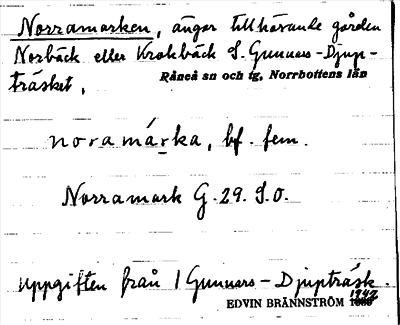 Norramarken, ängar tillhörande gården
Norbäck eller Krokbäck S. Gunnars-Djup-
träsket,
Råneå sn och tg, Norrbottens län
noramárka, bf. fem.
Norramark G. 29. S.O.
Uppgiften från 1 Gunnars-Djupträsk.
EDVIN BRÄNNSTRÖM 1942